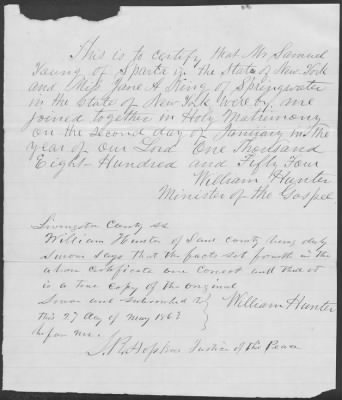 This is to certify that Mr Samuel
Young of Sparta in the State of New York
and Miss Jane A King of Springwater
in the State of New York Were by me
joined together in Holy Matrimony
on the second day of January in the
year of our Lord One Thousand
Eight-Hundred and Fifty Four
William Hunter
Minister of the Gospel
Livingston County ss
William Hunter of said county being duly
sworn says that the facts set fourth in the
above certificate are correct and that it
is a true copy of the original
Sworn and subscribed to
this 27 day of May 1863
before me
William Hunter
S. R. Hopkins Justice of the Peace